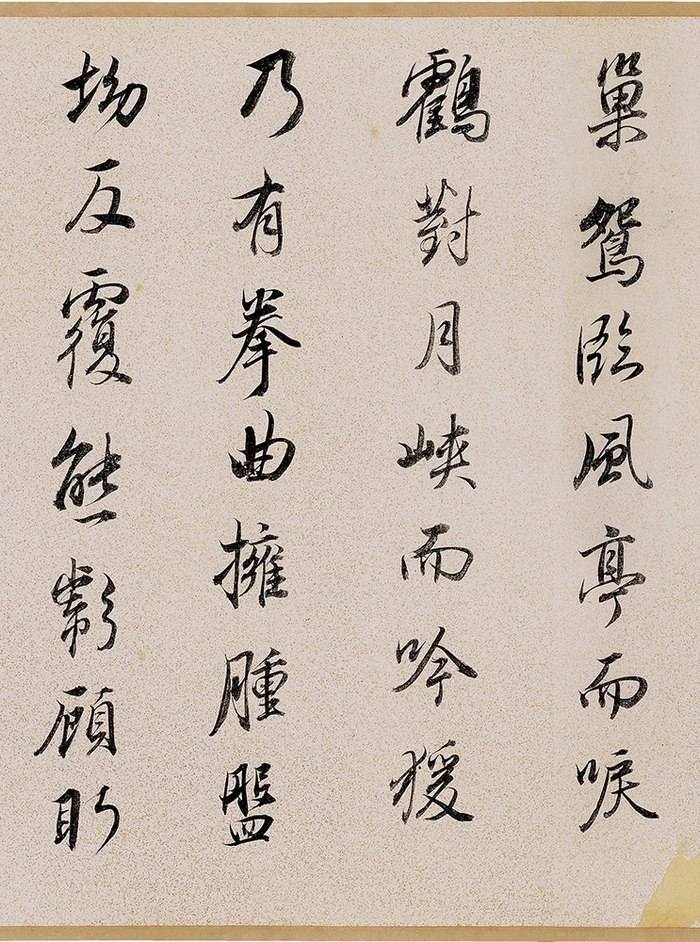 巢鴛臨風亭而唳
鸖對月峽而吟猨
乃有拳曲擁腫盤
坳反覆熊彪顧盼